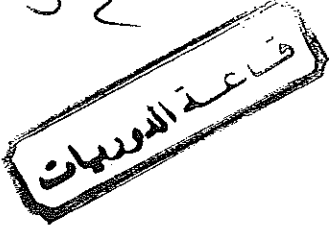 قاعة الدوريات